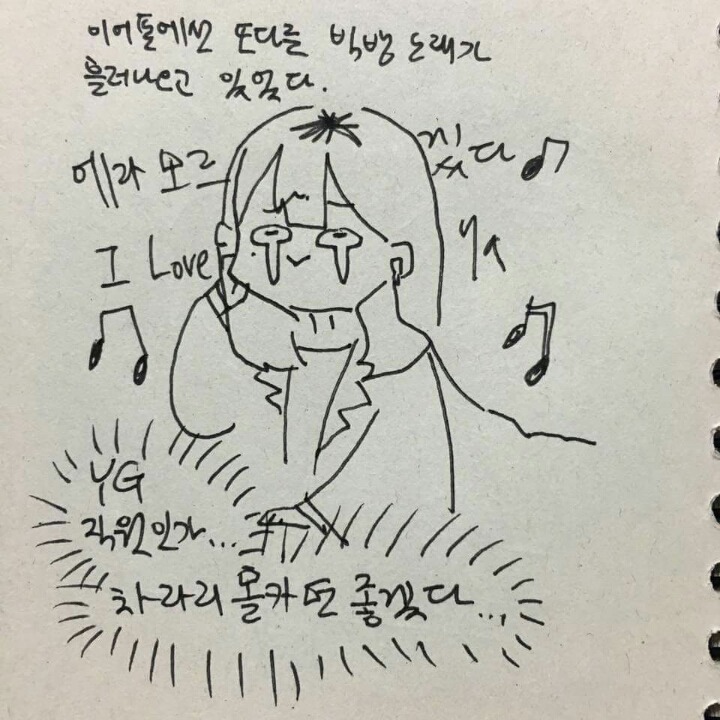 이어폰에선 또다른 빅뱅 노래가
흘러나오고 있었다.
에라 모르겠다
I Love ya
YG
직원인가...
차라리 몰카면 좋겠다...